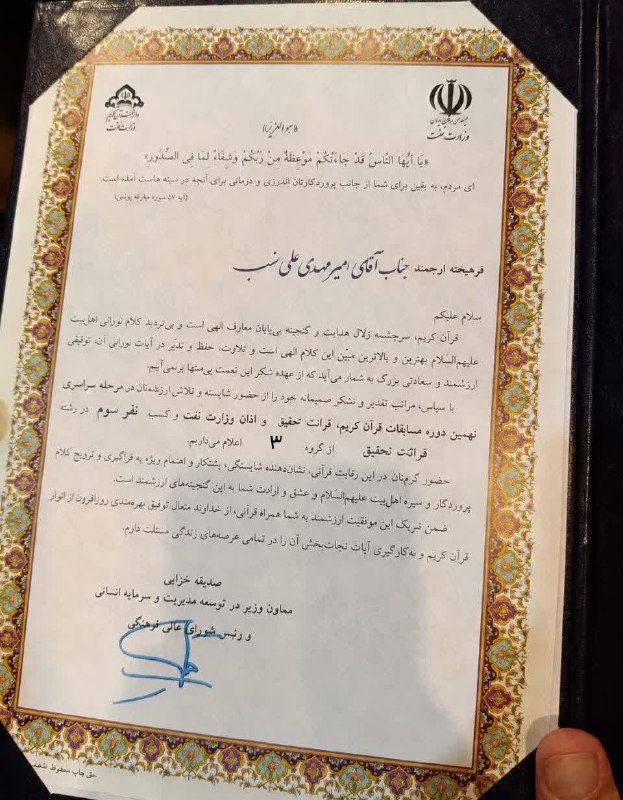 جمهوری اسلامی ایران
وزارت نفت
وزارت نفت
«هو العزیز»
«یَا أَیُّهَا النَّاسُ قَدْ جَاءَتْکُمْ مَوْعِظَةٌ مِنْ رَبِّکُمْ وَشِفَاءٌ لِمَا فِی الصُّدُورِ»
ای مردم، به یقین برای شما از جانب پروردگارتان اندرزی و درمانی برای آنچه در سینه هاست آمده است.
(آیه ۵۷ سوره مبارکه یونس)
فرهیخته ارجمند جناب آقای امیرمهدی علی نسب
سلام علیکم
قرآن کریم، سرچشمه زلال هدایت و گنجینه بی‌پایان معارف الهی است و بی‌تردید کلام نورانی اهل‌بیت
علیهم‌السلام بهترین و بالاترین مبیّن این کلام الهی است و تلاوت، حفظ و تدبر در آیات نورانی آن، توفیقی
ارزشمند و سعادتی بزرگ به شمار می‌آید که از عهده شکر این نعمت بی‌منتها برنمی‌آییم.
با سپاس، مراتب تقدیر و تشکر صمیمانه خود را از حضور شایسته و تلاش ارزشمندتان در مرحله سراسری
نهمین دوره مسابقات قرآن کریم، قرائت تحقیق و اذان وزارت نفت و کسب نفر سوم در رشته
قرائت تحقیق از گروه ۳ اعلام می‌داریم.
حضور گرم‌تان در این رقابت قرآنی، نشان‌دهنده شایستگی، پشتکار و اهتمام ویژه به فراگیری و ترویج کلام
پروردگار و سیره اهل‌بیت علیهم‌السلام و عشق و ارادت شما به این گنجینه‌های ارزشمند است.
ضمن تبریک این موفقیت ارزشمند به شما همراه قرآنی، از خداوند متعال توفیق بهره‌مندی روزافزون از انوار
قرآن کریم و به‌کارگیری آیات نجات‌بخش آن را در تمامی عرصه‌های زندگی مسئلت دارم.
صدیقه خزایی
معاون وزیر در توسعه مدیریت و سرمایه انسانی
و رئیس شورای عالی فرهنگی
حق چاپ محفوظ